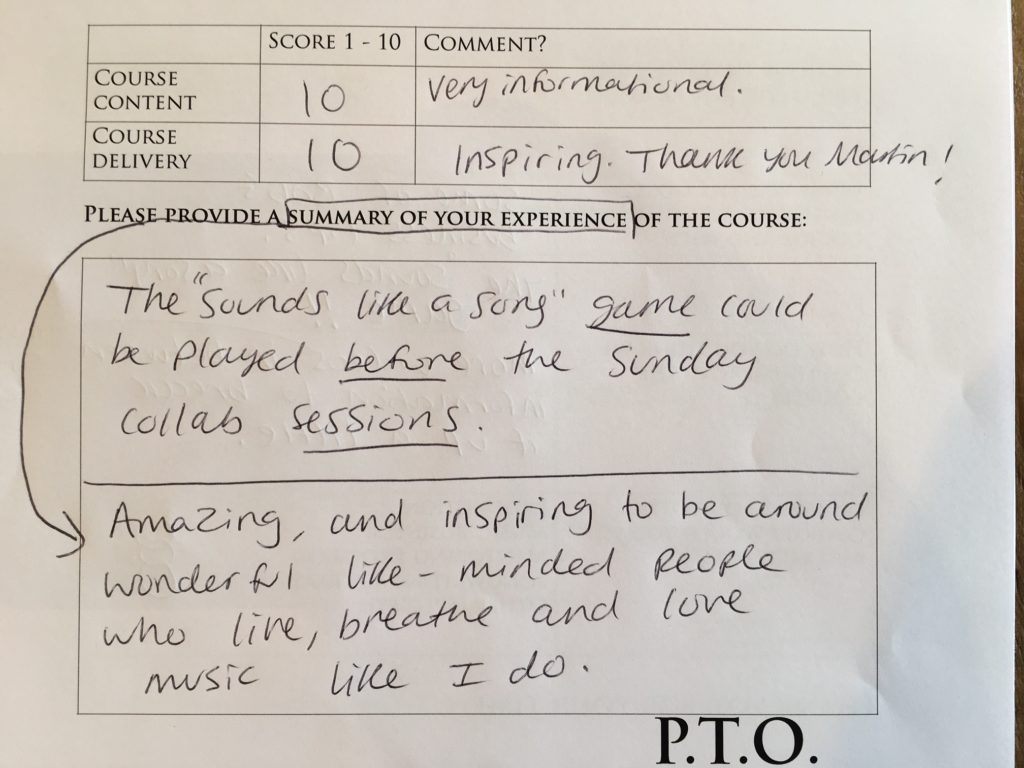 SCORE 1 - 10 COMMENT?
COURSE CONTENT 10 Very informational.
COURSE DELIVERY 10 Inspiring. Thank you Martin!
PLEASE PROVIDE A SUMMARY OF YOUR EXPERIENCE OF THE COURSE:
The "Sounds like a song" game could
be played before the Sunday
collab sessions.
Amazing, and inspiring to be around
wonderful like-minded people
who live, breathe and love
music like I do.
P.T.O.